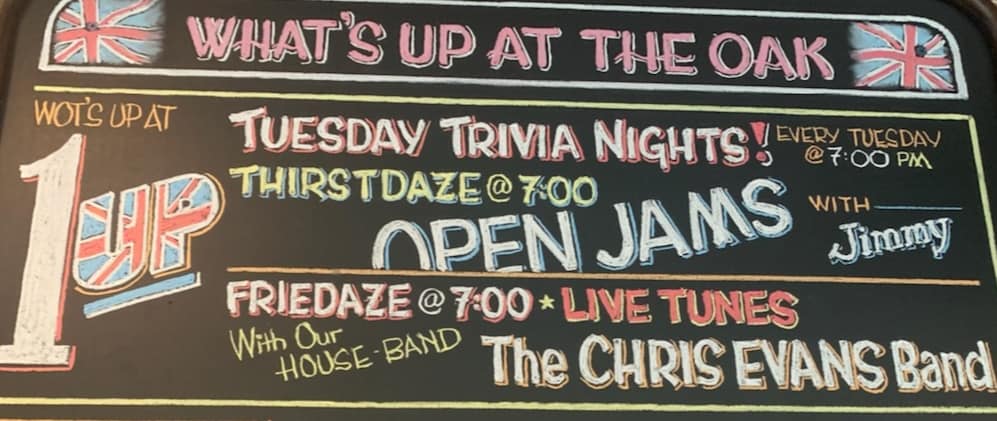 WHAT'S UP AT THE OAK
WOT'S UP AT
1UP
TUESDAY TRIVIA NIGHTS! EVERY TUESDAY
@ 7:00 PM
THIRSTDAZE @ 7:00
OPEN JAMS WITH
Jimmy
FRIEDAZE @ 7:00 * LIVE TUNES
With Our
HOUSE-BAND
The CHRIS EVANS Band